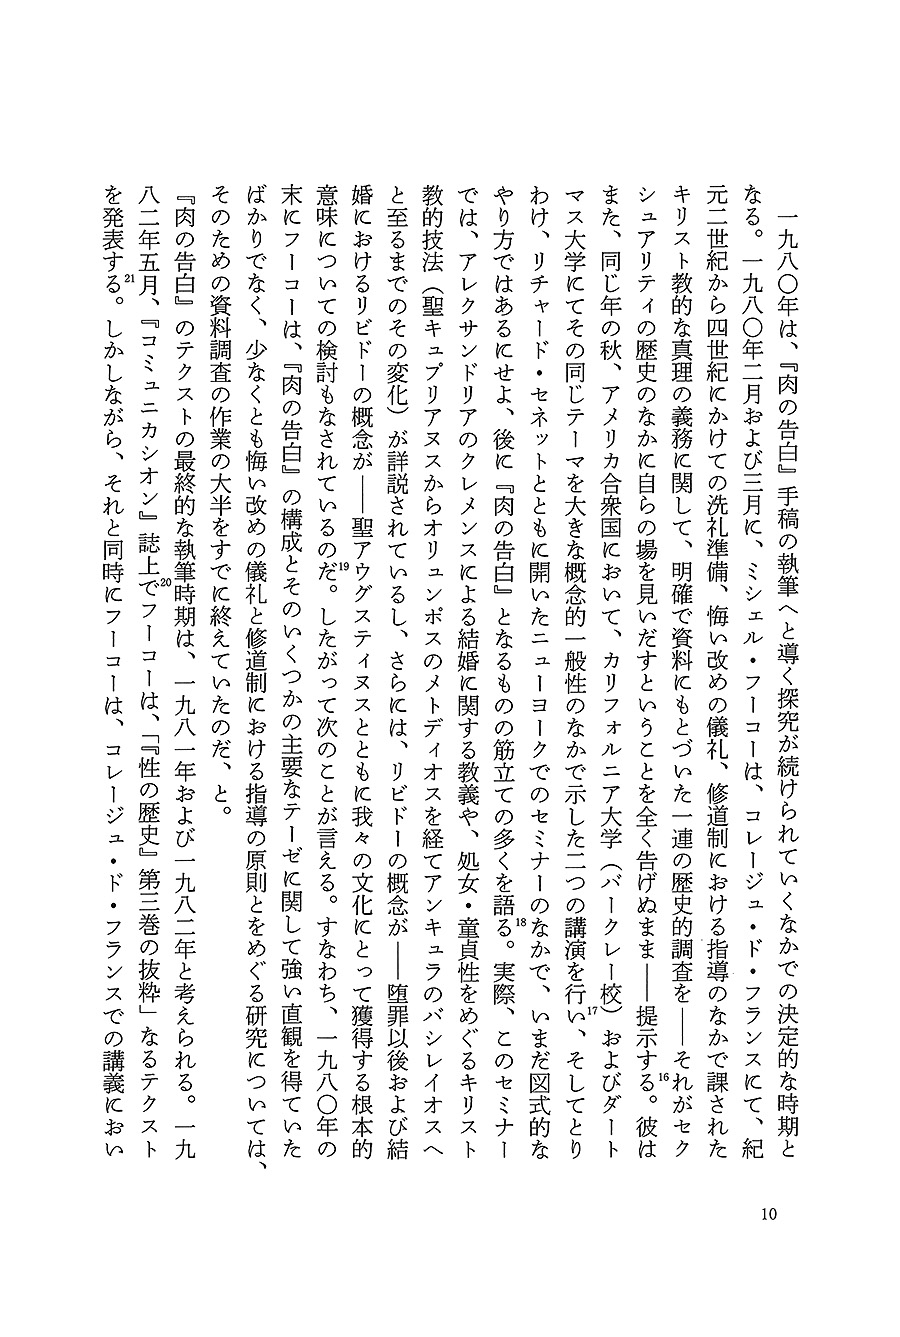 一九八〇年は、『肉の告白』手稿の執筆へと導く探究が続けられていくなかでの決定的な時期と
なる。一九八〇年二月および三月に、ミシェル・フーコーは、コレージュ・ド・フランスにて、紀
元二世紀から四世紀にかけての洗礼準備、悔い改めの儀礼、修道制における指導のなかで課された
キリスト教的な真理の義務に関して、明確で資料にもとづいた一連の歴史的調査を――それがセク
シュアリティの歴史のなかに自らの場を見いだすということを全く告げぬまま――提示する16。彼は
また、同じ年の秋、アメリカ合衆国において、カリフォルニア大学（バークレー校）およびダート
マス大学にてその同じテーマを大きな概念的一般性のなかで示した二つの講演を行い17、そしてとり
わけ、リチャード・セネットとともに開いたニューヨークでのセミナーのなかで、いまだ図式的な
やり方ではあるにせよ、後に『肉の告白』となるものの筋立ての多くを語る18。実際、このセミナー
では、アレクサンドリアのクレメンスによる結婚に関する教義や、処女・童貞性をめぐるキリスト
教的技法（聖キュプリアヌスからオリュンポスのメトディオスを経てアンキュラのバシレイオスへ
と至るまでのその変化）が詳説されているし、さらには、リビドーの概念が――堕罪以後および結
婚におけるリビドーの概念が――聖アウグスティヌスとともに我々の文化にとって獲得する根本的
意味についての検討もなされているのだ19。したがって次のことが言える。すなわち、一九八〇年の
末にフーコーは、『肉の告白』の構成とそのいくつかの主要なテーゼに関して強い直観を得ていた
ばかりでなく、少なくとも悔い改めの儀礼と修道制における指導の原則とをめぐる研究については、
そのための資料調査の作業の大半をすでに終えていたのだ、と。
『肉の告白』のテクストの最終的な執筆時期は、一九八一年および一九八二年と考えられる。一九
八二年五月、『コミュニカシオン』誌上で20フーコーは、「『性の歴史』第三巻の抜粋」なるテクスト
を発表する21。しかしながら、それと同時にフーコーは、コレージュ・ド・フランスでの講義におい
10